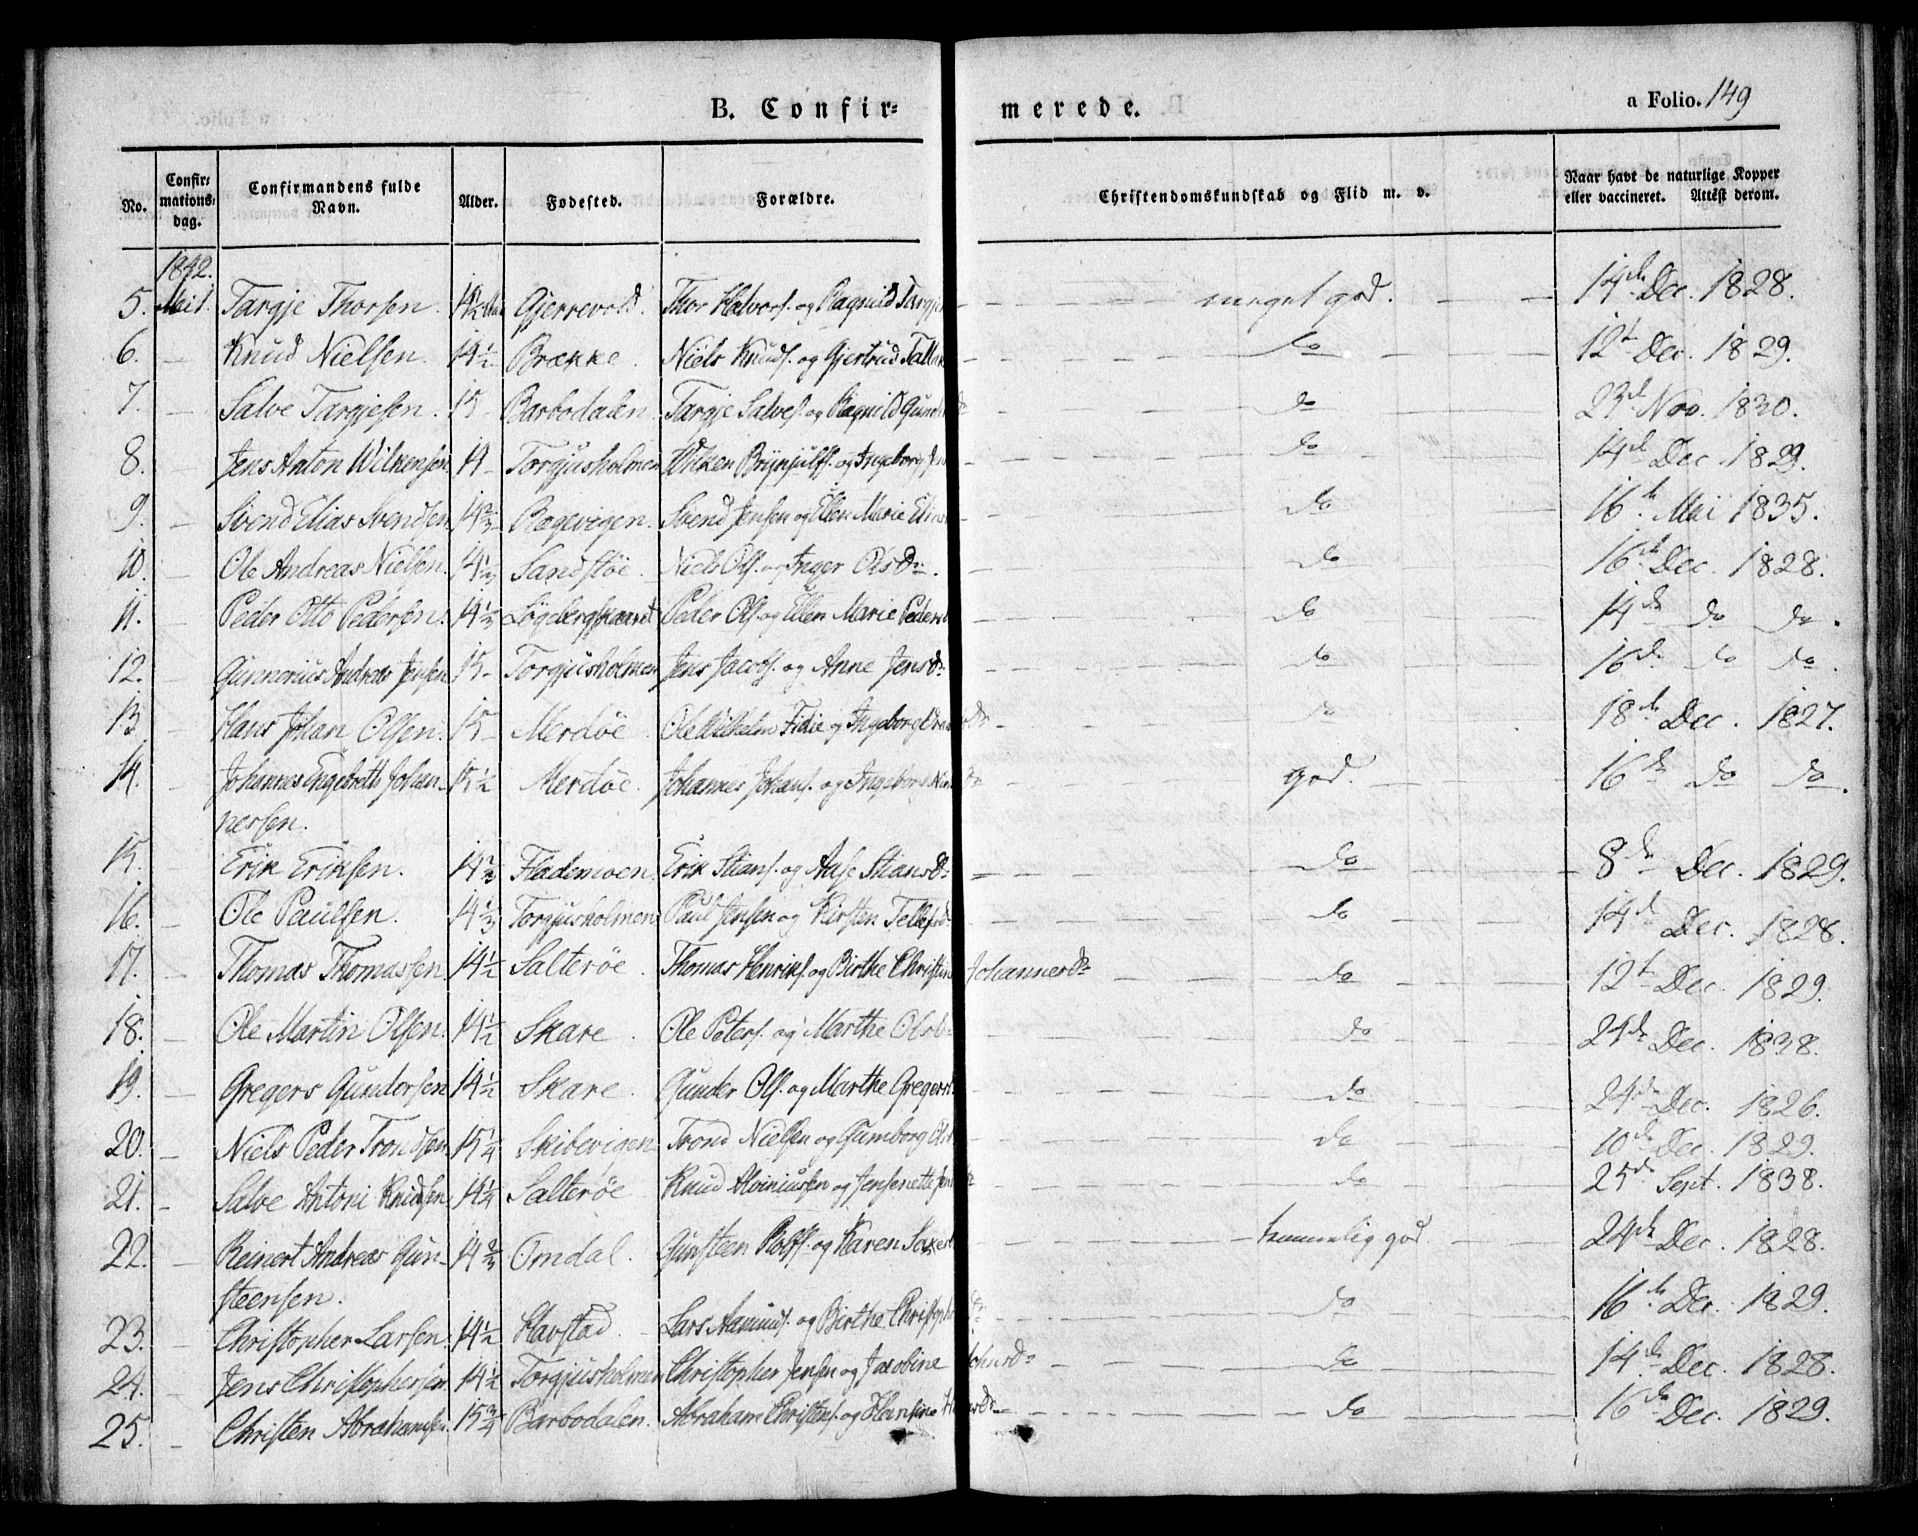 B. Confir= merede. a Folio. 149
No. Confir= mations= dag. Confirmandens fulde Navn. Alder. Fødested. Forældre. Christendomskundskab og Flid m. v. Naar havt de naturlige Kopper eller vaccineret. Attest derom.
1842.
5. Mai 1. Targje Thorsen. 14 1/2 Gjerrevold. Thor Halvors. og Ragnild Targjes meget god. 14de Dec. 1828.
6. — Knud Nielsen. 14 1/2 Brække. Niels Knuds. og Gjertrud Do 12t Dec. 1829.
7. — Salve Targjesen. 15 Barbodalen. Targje Salves. og Ragnild Do 23de Nov. 1830.
8. Jens Anton Wilkensen 14 — Torgjusholmen Wilken Brynjulfs. og Ingeborg Do 14de Dec. 1829.
9. — Svend Elias Svendsen 14 2/3 Bagevigen. Svend Jensen og Ellen Marie Do 16de Mai 1835.
10. — Ole Andreas Nielsen. 14 1/3 Sandstøe. Niels Ols. og Inger OlsDr. Do 16de Dec. 1828.
11. — Peder Otto Pedersen. 14 1/2 Peder Ols. og Ellen Marie Peders Do 14de Do Do.
12. — Gunnerius Andreas Jensen 15 — Torgjusholmen Jens Jacobs. og Anne JensDr Do 16de Do Do.
13 — Hans Johan Olsen. 15 — Merdøe. Ole Wilhelm Fidie og Ingeborg Do 18de Dec. 1827.
14. Johannes Engebreth Johan- 15 1/2 Merdøe. Johannes Johans. og Ingebor god. 16de Do Do.
nessen.
15. Erik Eriksen. 14 2/3 Flademoen. Erik Stians. og Aase StiansDr Do 8de Dec. 1829.
16. — Ole Paulsen. 14 1/3 Torgjusholmen Paul Jensen og Kirsten Tellefsd Do 14de Dec. 1828.
17. — Thomas Thomassen 14 1/2 Salterøe. Thomas Henriks. og Birthe Christine JohannesDr Do 12t Dec. 1829.
18. — Ole Martin Olsen. 14 1/2 Skare. Ole Peters. og Marthe Do 24de Dec. 1838.
19. — Gregers Gundersen 14 1/2 Skare. Gunder Ols. og Marthe Gregers Do 24de Dec. 1826.
20. — Niels Peder Trondsen 15 1/4 Skibevigen Trond Nielsen og Gumborg Do 10de Dec. 1829.
21. — Salve Antoni Knudsen 14 1/4 Salterøe Knud og Jensenette Do 25de Sept. 1838.
22. — Reinert Andreas Gun- 14 2/3 Omdal. Gunsteen Rolfs. og Karen temmelig god 24de Dec. 1828.
steensen.
23. — Christopher Larsen. 14 1/2 Havstad. Lars Aamunds. og Birthe Do 16de Dec. 1829.
24. — Jens Christophersen 14 1/2 Torgjusholmen Christopher Jensen og Jacobine JohnsDr Do 14de Dec. 1828.
25. — Christen Abrahamsen 15 3/4 Barbodalen. Abraham Christens. og Do 16de Dec. 1829.